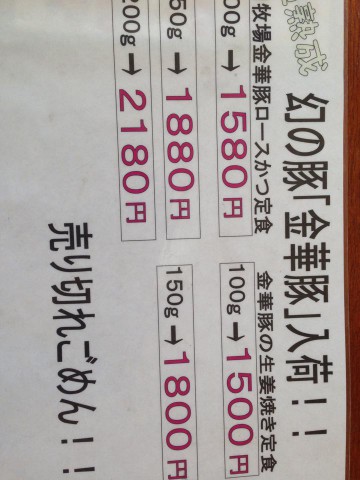 熟成
幻の豚「金華豚」入荷！！
牧場金華豚ロースかつ定食
00g→1580円
50g→1880円
200g→2180円
金華豚の生姜焼き定食
100g→1500円
150g→1800円
売り切れごめん！！